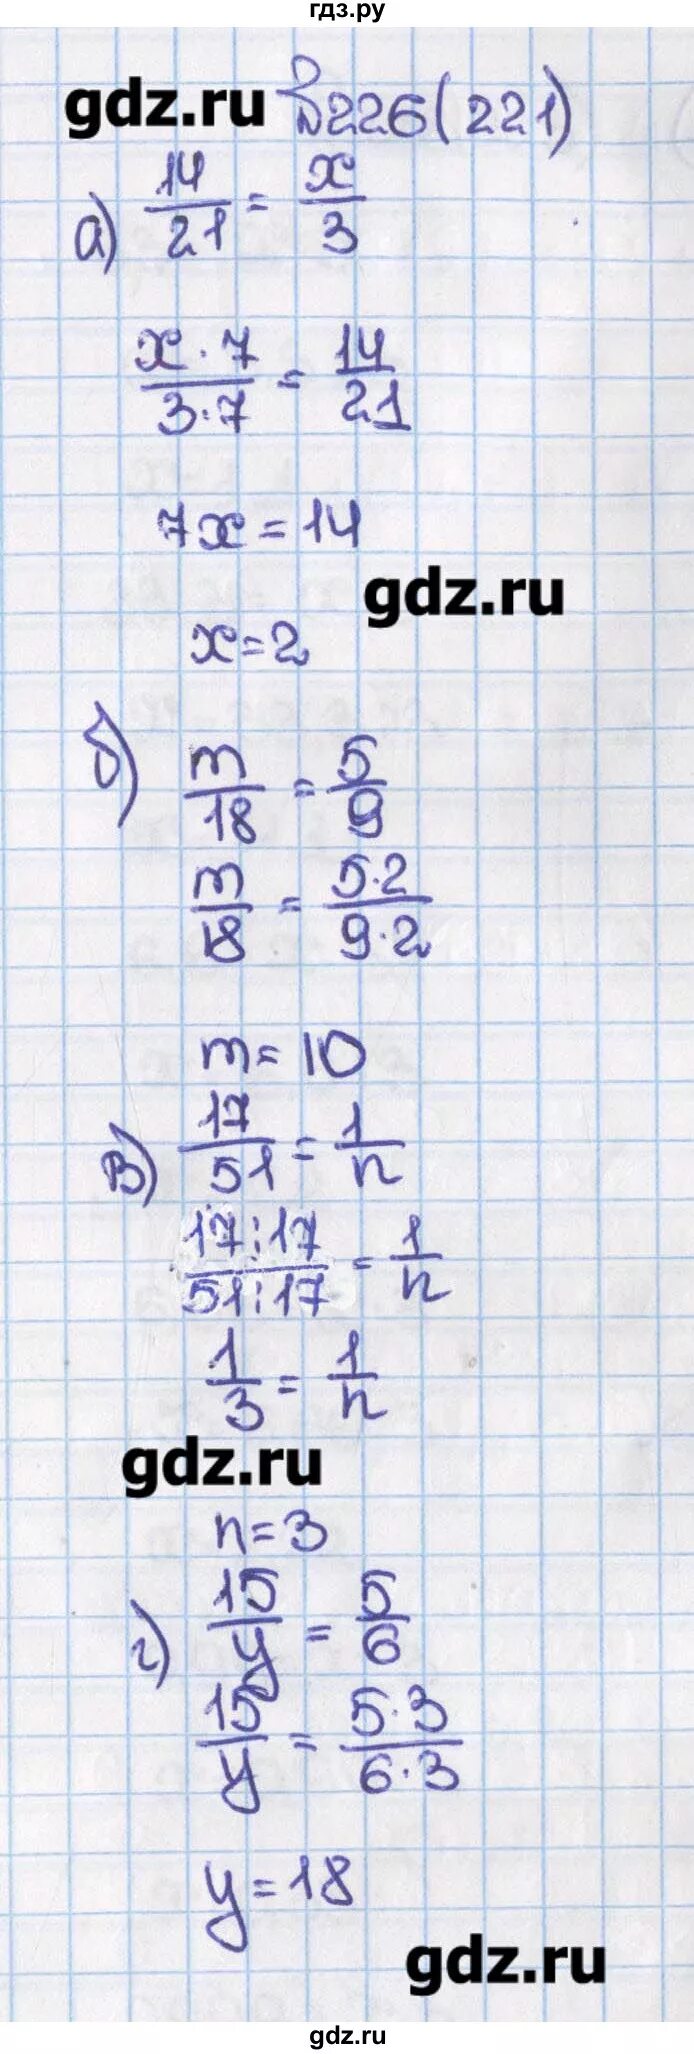 гдз.ру
gdz.ru №226(221)
а) 14/21 = x/3
x·7/3·7 = 14/21
7x = 14
gdz.ru
x = 2
б) m/18 = 5/9
m/18 = 5·2/9·2
m = 10
в) 17/51 = 1/n
17:17/51:17 = 1/n
1/3 = 1/n
gdz.ru
n = 3
г) 15/y = 5/6
15/y = 5·3/6·3
y = 18
gdz.ru
gdz.ru